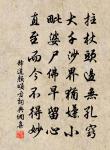 拄杖頭邊無孔竅
大千沙界猶嫌小
毗婆尸佛早留心
直至而今不得妙
釋道顏頌古詞典網